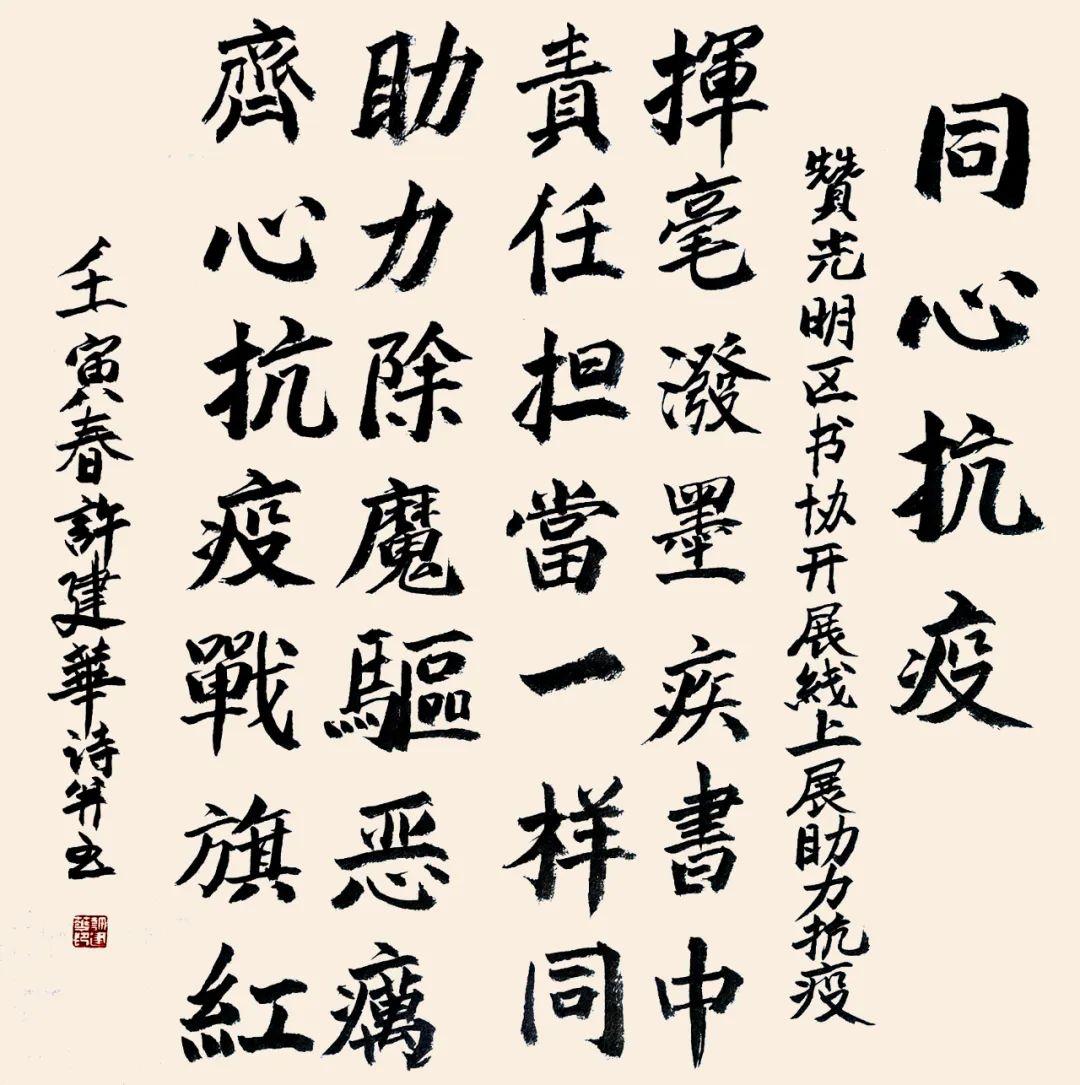 同心抗疫
贊光明区书协开展线上展助力抗疫
揮毫潑墨疾書中
責任担當一样同
助力除魔驅恶癘
齊心抗疫戰旗紅
壬寅春許建華诗并书